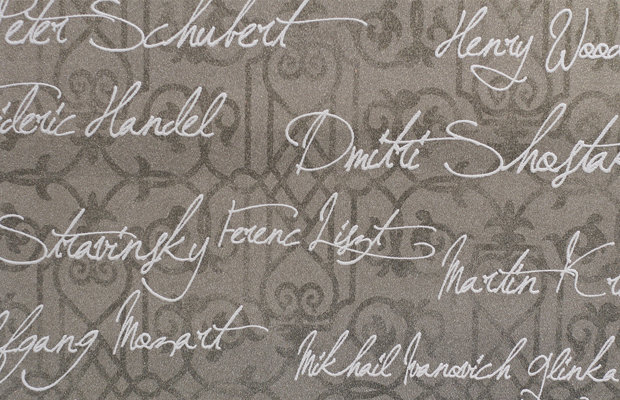 Peter Schubert
Henry Wood
ideric Handel
Dmitri Shostak
Stravinsky
Ferenc Liszt
Martin Kr
fgang Mozart
Mikhail Ivanovich glinka